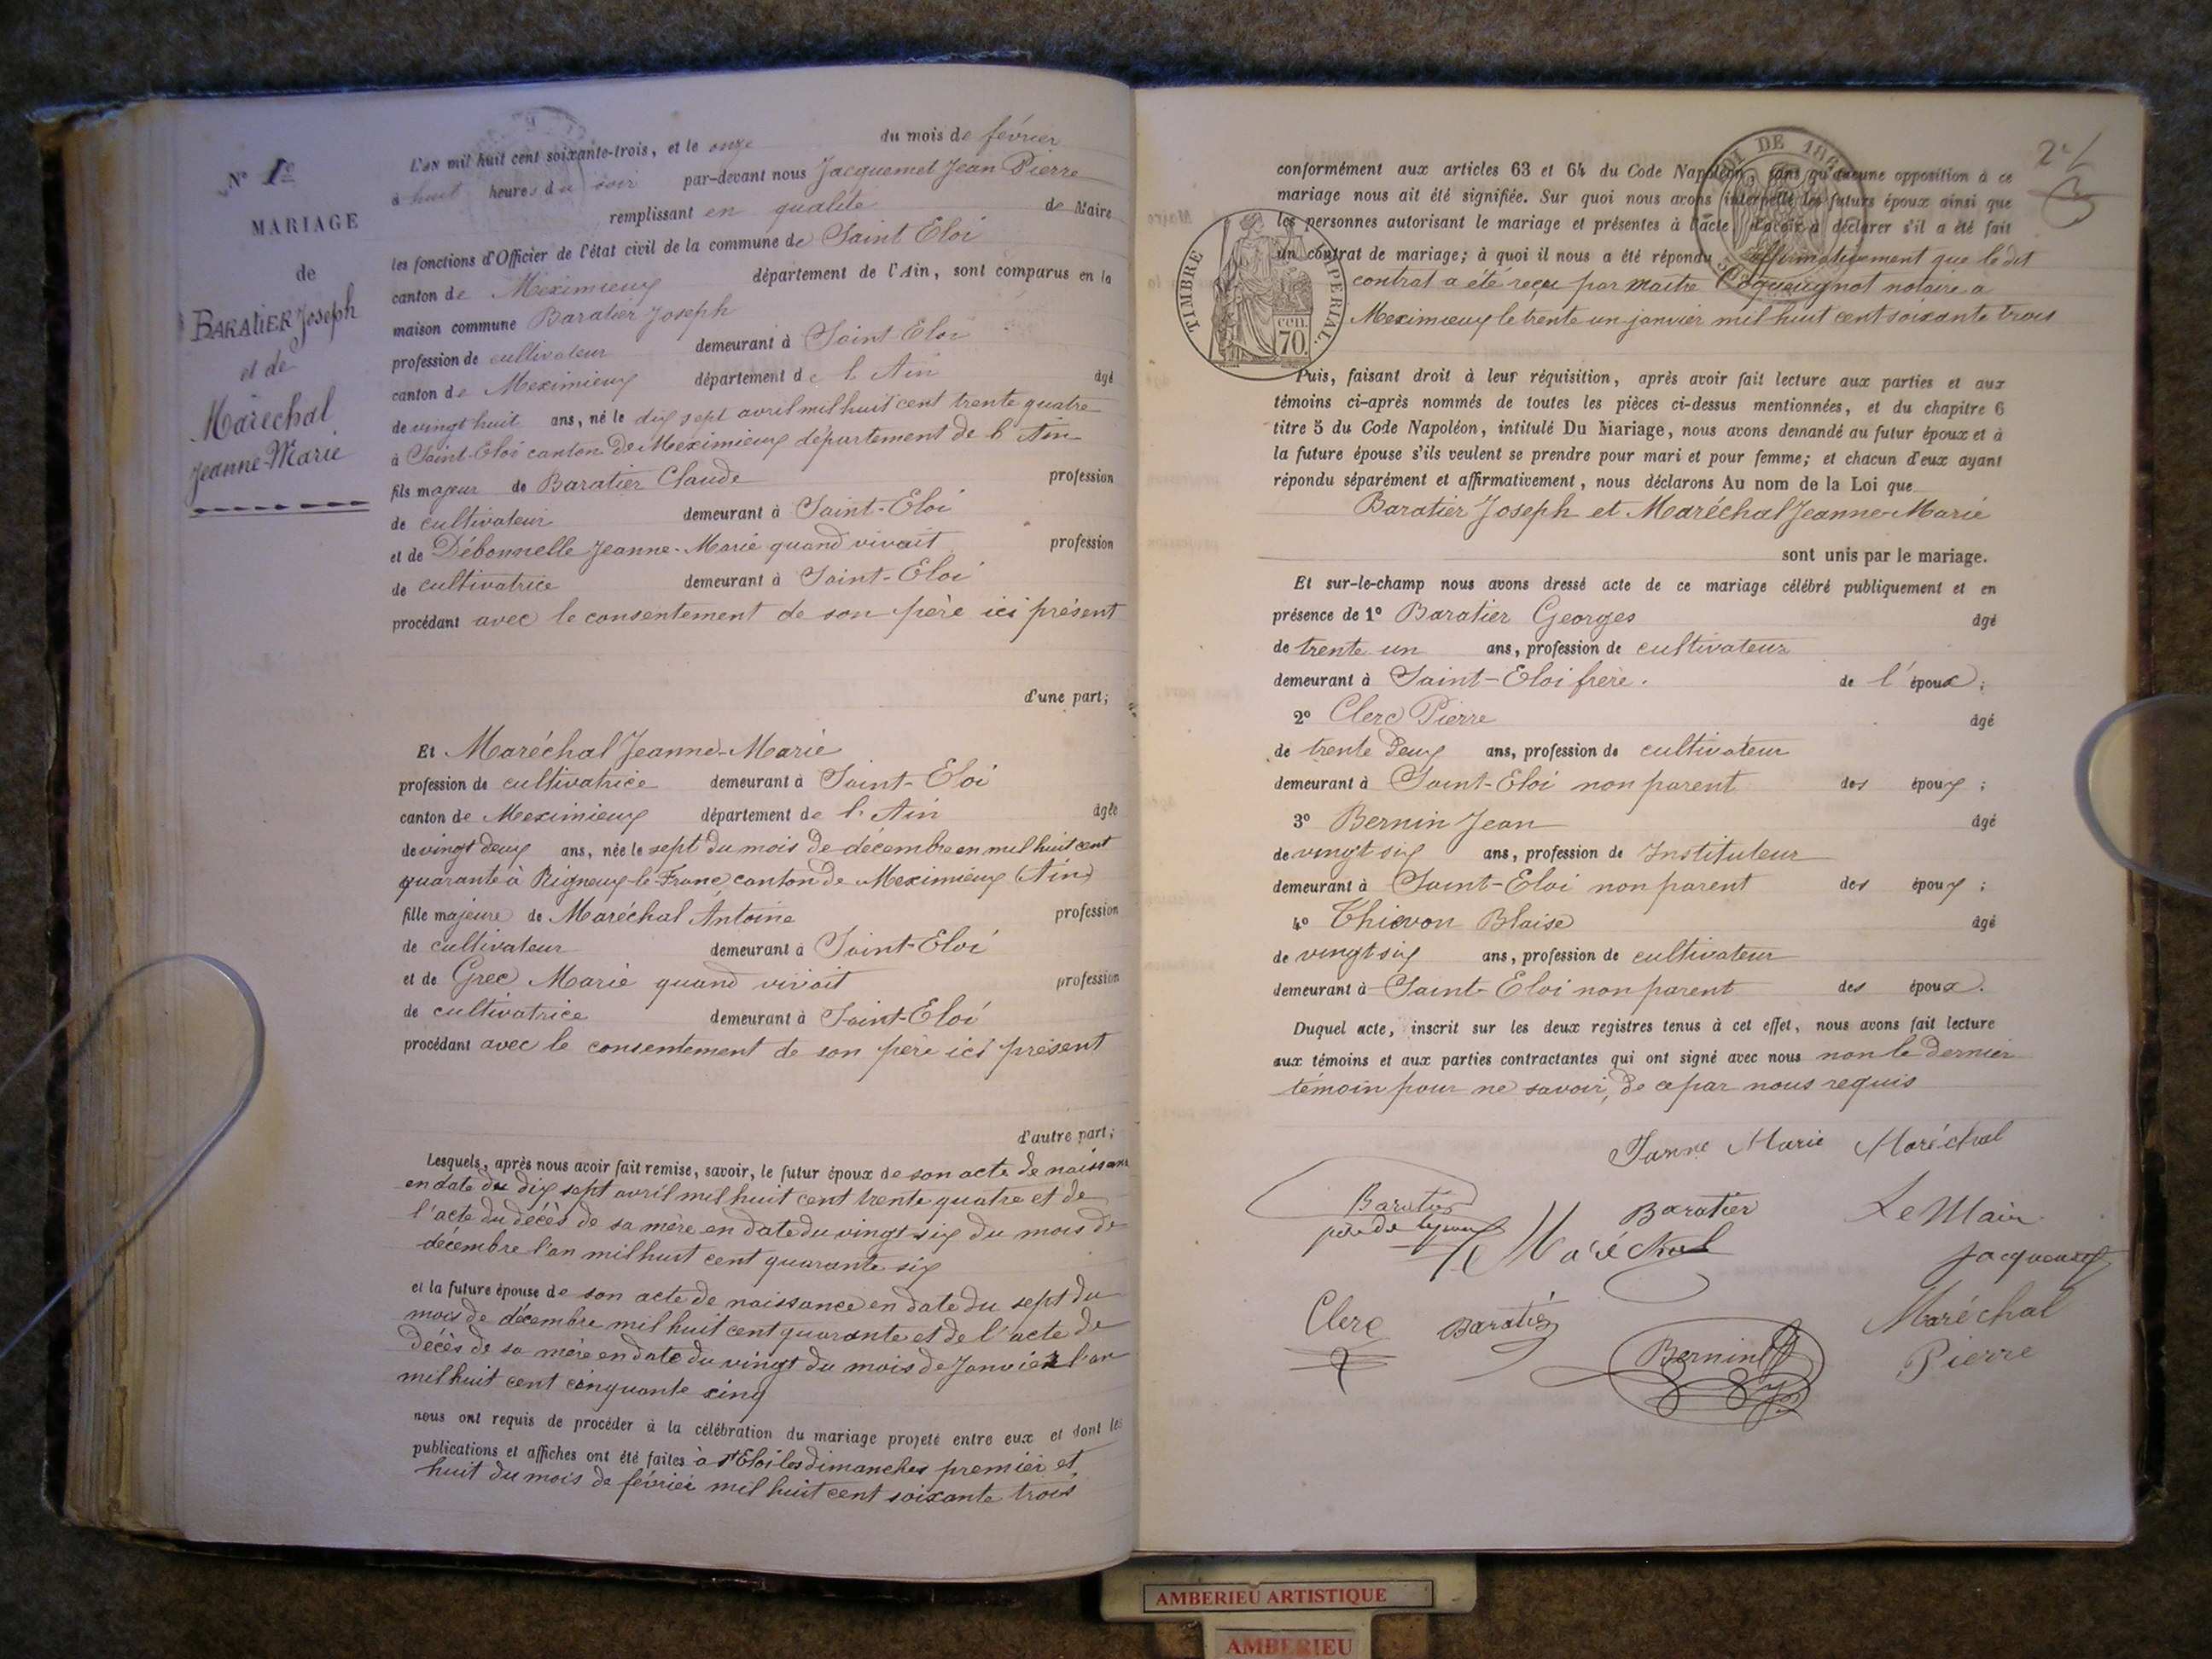 N° 1er
MARIAGE
de
BARATIER Joseph
et de
Maréchal
Jeanne-Marie
L'an mil huit cent soixante-trois, et le onze du mois de février
à huit heures du soir par-devant nous Jacquemet Jean Pierre
remplissant en qualité de Maire
les fonctions d'Officier de l'état civil de la commune de Saint Eloi
canton de Meximieux département de l'Ain, sont comparus en la
maison commune Baratier Joseph
profession de cultivateur demeurant à Saint Eloi
canton de Meximieux département de l'Ain âgé
de vingt huit ans, né le dix sept avril mil huit cent trente quatre
à Saint-Eloi canton de Meximieux département de l'Ain
fils majeur de Baratier Claude profession
de cultivateur demeurant à Saint-Eloi
et de Débonnelle Jeanne-Marie quand vivait profession
de cultivatrice demeurant à Saint-Eloi
procédant avec le consentement de son père ici présent
d'une part;
Et Maréchal Jeanne-Marie
profession de cultivatrice demeurant à Saint-Eloi
canton de Meximieux département de l'Ain âgée
de vingt deux ans, née le sept du mois de décembre en mil huit cent
quarante à Rigneux-le-Franc canton de Meximieux (Ain)
fille majeure de Maréchal Antoine profession
de cultivateur demeurant à Saint-Eloi
et de Grec Marie quand vivait profession
de cultivatrice demeurant à Saint-Eloi
procédant avec le consentement de son père ici présent
d'autre part;
Lesquels, après nous avoir fait remise, savoir, le futur époux de son acte de naissance
en date du dix sept avril mil huit cent trente quatre et de
l'acte du décès de sa mère en date du vingt six du mois de
décembre l'an mil huit cent quarante six
et la future épouse de son acte de naissance en date du sept du
mois de décembre mil huit cent quarante et de l'acte de
décès de sa mère en date du vingt du mois de Janvier l'an
mil huit cent cinquante cinq
nous ont requis de procéder à la célébration du mariage projeté entre eux et dont les
publications et affiches ont été faites à St Eloi les dimanches premier et
huit du mois de février mil huit cent soixante trois
conformément aux articles 63 et 64 du Code Napoléon, sans qu'aucune opposition à ce
mariage nous ait été signifiée. Sur quoi nous avons interpellé les futurs époux ainsi que
les personnes autorisant le mariage et présentes à l'acte d'avoir à déclarer s'il a été fait
un contrat de mariage; à quoi il nous a été répondu affirmativement que le dit
contrat a été reçu par maître Coqueugnot notaire a
Meximieux le trente un janvier mil huit cent soixante trois
TIMBRE IMPERIAL.
cen. 70.
Puis, faisant droit à leur réquisition, après avoir fait lecture aux parties et aux
témoins ci-après nommés de toutes les pièces ci-dessus mentionnées, et du chapitre 6
titre 5 du Code Napoléon, intitulé Du Mariage, nous avons demandé au futur époux et à
la future épouse s'ils veulent se prendre pour mari et pour femme; et chacun d'eux ayant
répondu séparément et affirmativement, nous déclarons Au nom de la Loi que
Baratier Joseph et Maréchal Jeanne-Marie
sont unis par le mariage.
Et sur-le-champ nous avons dressé acte de ce mariage célébré publiquement et en
présence de 1° Baratier Georges âgé
de trente un ans, profession de cultivateur
demeurant à Saint-Eloi frère. de l'époux;
2° Clerc Pierre âgé
de trente deux ans, profession de cultivateur
demeurant à Saint-Eloi non parent des époux;
3° Bernin Jean âgé
de vingt six ans, profession de Instituteur
demeurant à Saint-Eloi non parent des époux;
4° Thievon Blaise âgé
de vingt six ans, profession de cultivateur
demeurant à Saint-Eloi non parent des époux.
Duquel acte, inscrit sur les deux registres tenus à cet effet, nous avons fait lecture
aux témoins et aux parties contractantes qui ont signé avec nous non le dernier
témoin pour ne savoir, de ce par nous requis
Janne Marie Maréchal
Baratier Baratier Le Maire
Maréchal
Clerc Baratier Bernin Maréchal
Pierre
AMBERIEU ARTISTIQUE
AMBERIEU